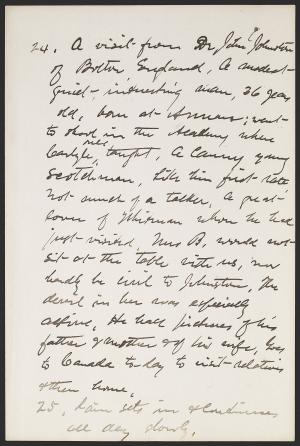 24. A visit from Dr John Johnston
of Bolton England, A modest
quiet, interesting man, 36 years
old, born at Annan; went
to school in the Academy where
Carlyle once taught, A canny young
Scotchman, Like him first rate
Not much of a talker, A great
lover of Whitman where he had
just visited, Mrs B. would not
sit at the table with us, nor
hardly be civil to Johnston, The
devil in her was especially
active, He had pictures of his
father & mother & of his wife, Goes
to Canada to-day to visit relatives
& then home,
25, Rain sets in & continues
all day slowly,